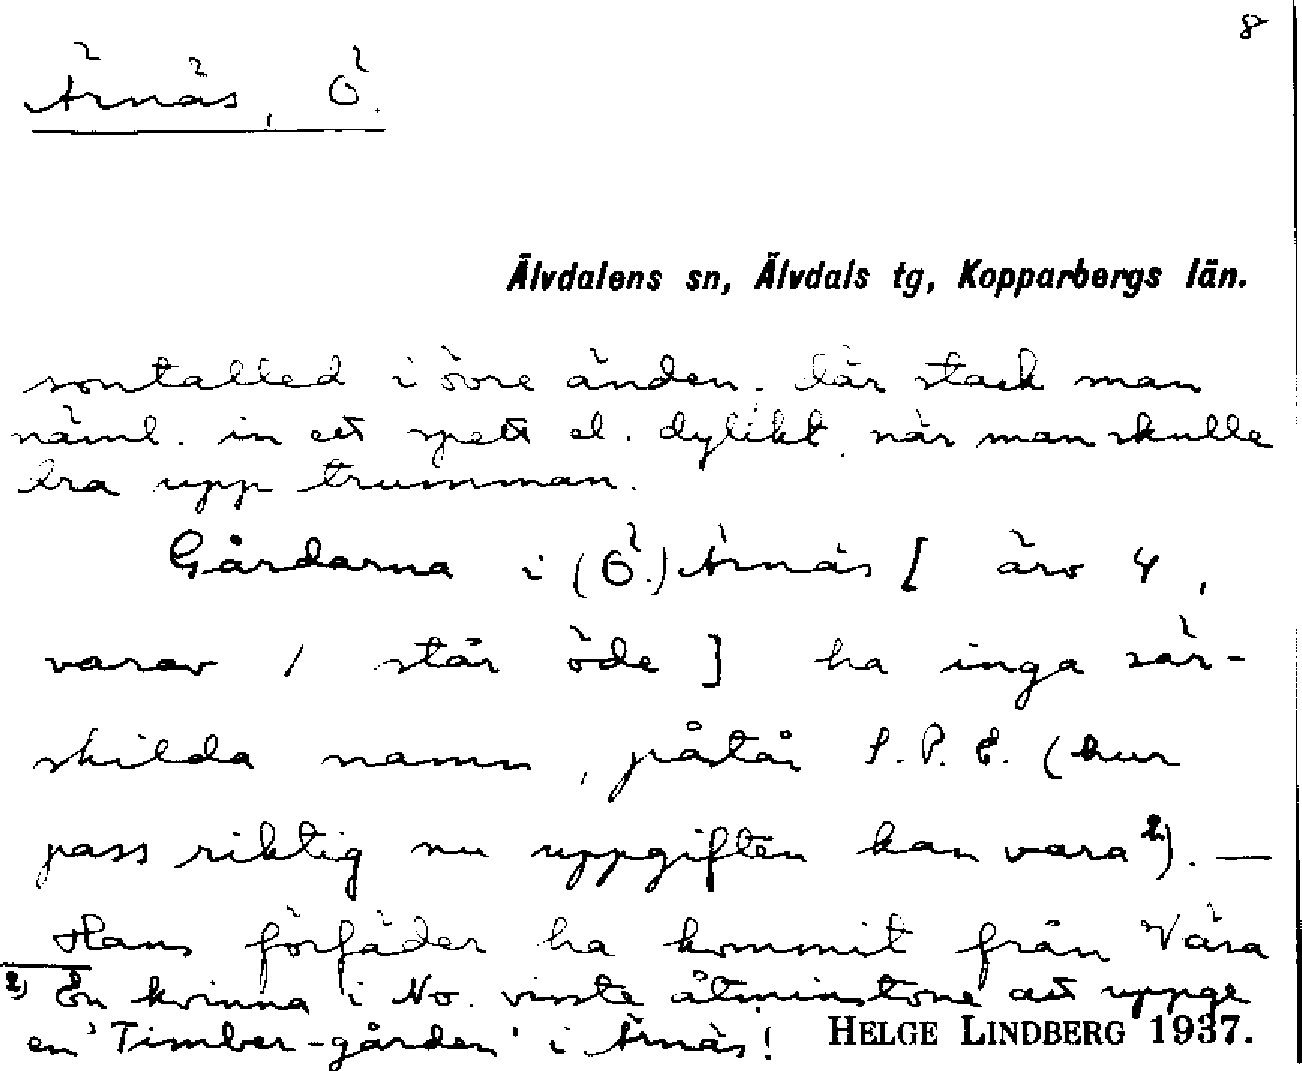 8
Ärnäs, Ö.
Älvdalens sn, Älvdals tg, Kopparbergs län.
sontalled i övre änden. Där stack man
näml. in ett spett el. dylikt när man skulle
dra upp trumman.
Gårdarna i (Ö.) Ärnäs [ äro 4,
varav 1 står öde ] ha inga sär-
skilda namn, påstår S. P. E. (hur
pass riktig nu uppgiften kan vara 2)). —
Hans förfäder ha kommit från Våra
2) En kvinna i No. visste åtminstone att uppge
en 'Timber-gården' i Ärnäs!
HELGE LINDBERG 1937.